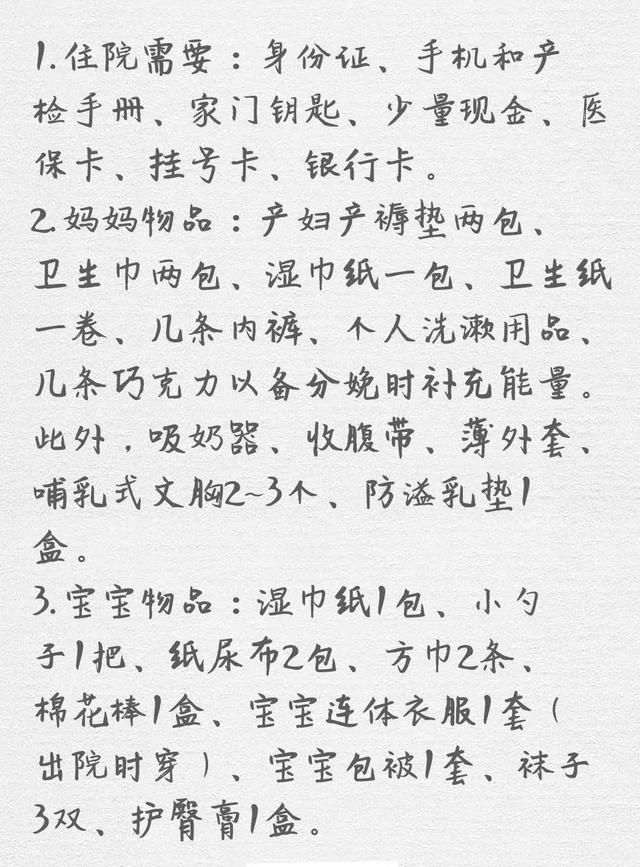 1.住院需要：身份证、手机和产
检手册、家门钥匙、少量现金、医
保卡、挂号卡、银行卡。
2.妈妈物品：产妇产褥垫两包、
卫生巾两包、湿巾纸一包、卫生纸
一卷、几条内裤、个人洗漱用品、
几条巧克力以备分娩时补充能量。
此外，吸奶器、收腹带、薄外套、
哺乳式文胸2~3个、防溢乳垫1
盒。
3.宝宝物品：湿巾纸1包、小勺
子1把、纸尿布2包、方巾2条、
棉花棒1盒、宝宝连体衣服1套（
出院时穿）、宝宝包被1套、袜子
3双、护臀膏1盒。